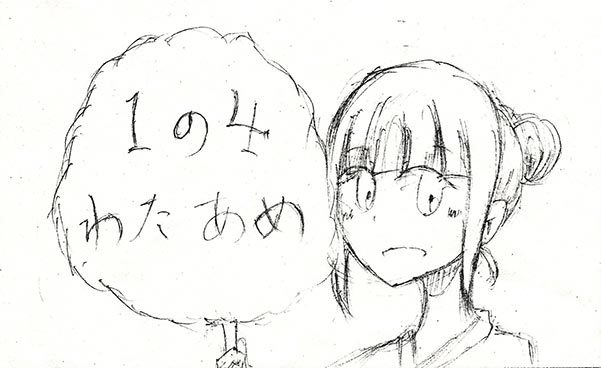 1の4
わたあめ